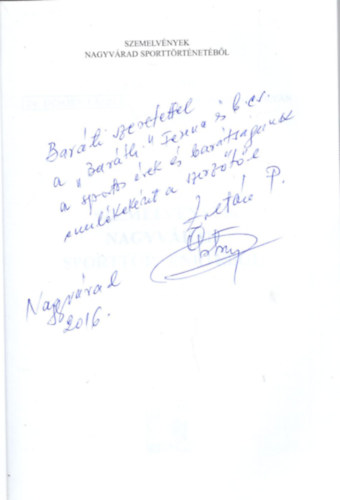 SZEMELVÉNYEK
NAGYVÁRAD SPORTTÖRTÉNETÉBŐL
Baráti szeretettel
a "Baráth" és b. cs.
a sportos évek és barátságunk
emlékeként a szerzőtől
Zoltán P.
Nagyvárad
2016.